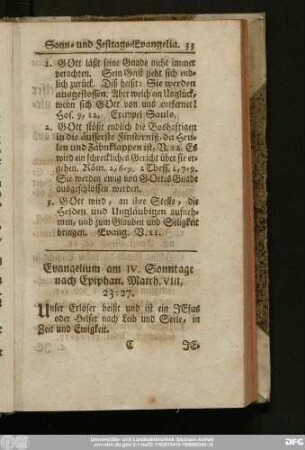 Sonn- und Festtags-Evangelia. 33
1. GOtt läßt seine Gnade nicht immer
verachten. Sein Geist zieht sich end-
lich zurück. Diß heißt: Sie werden
ausgestossen. Aber welch ein Unglück,
wenn sich GOtt von uns entfernet!
Hos. 9, 12. Exempel Sauls.
2. GOtt stößt endlich die Boshaftigen
in die äusserste Finsterniß, da Heu-
len und Zahnklappen ist, V. 12. Es
wird ein schreckliches Gericht über sie er-
gehen. Röm. 2, 6-9. 2 Thess. 1, 7-9.
Sie werden ewig von GOttes Gnade
ausgeschlossen werden.
3. GOtt wird, an ihre Stelle, die
Heiden und Ungläubigen aufneh-
men, und zum Glauben und Seligkeit
bringen. Evang. V. 11.
Evangelium am IV. Sonntage
nach Epiphan. Matth. VIII,
23-27.
Unser Erlöser heißt und ist ein JEsus
oder Helfer nach Leib und Seele, in
Zeit und Ewigkeit.
C JE-
Universitäts- und Landesbibliothek Sachsen-Anhalt
DFG